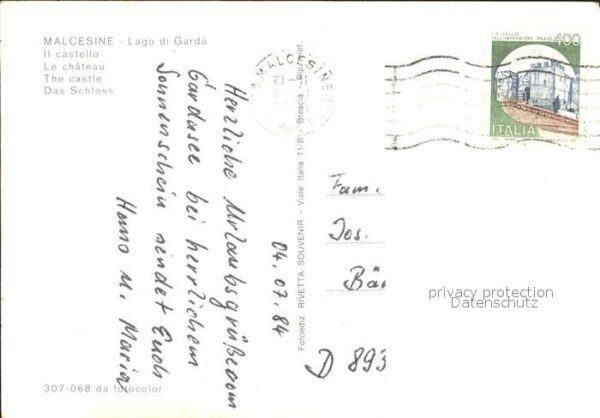 MALCESINE - Lago di Garda
Il castello
Le château
The castle
Das Schloss
Herzliche Urlaubsgrüße vom
Gardasee bei herrlichem
Sonnenschein sendet Euch
Hanno u. Maria
04.07.84
307-068 da fotocolor
Fotoediz. RIVETTA SOUVENIR - Viale Italia 11/B - Brescia - Rip. Viet.
MALCESINE
21-
CASTELLO
DELL'IMPERATORE - PRATO
400
ITALIA
Fam.
Jos.
Bä
D 893
privacy protection
Datenschutz